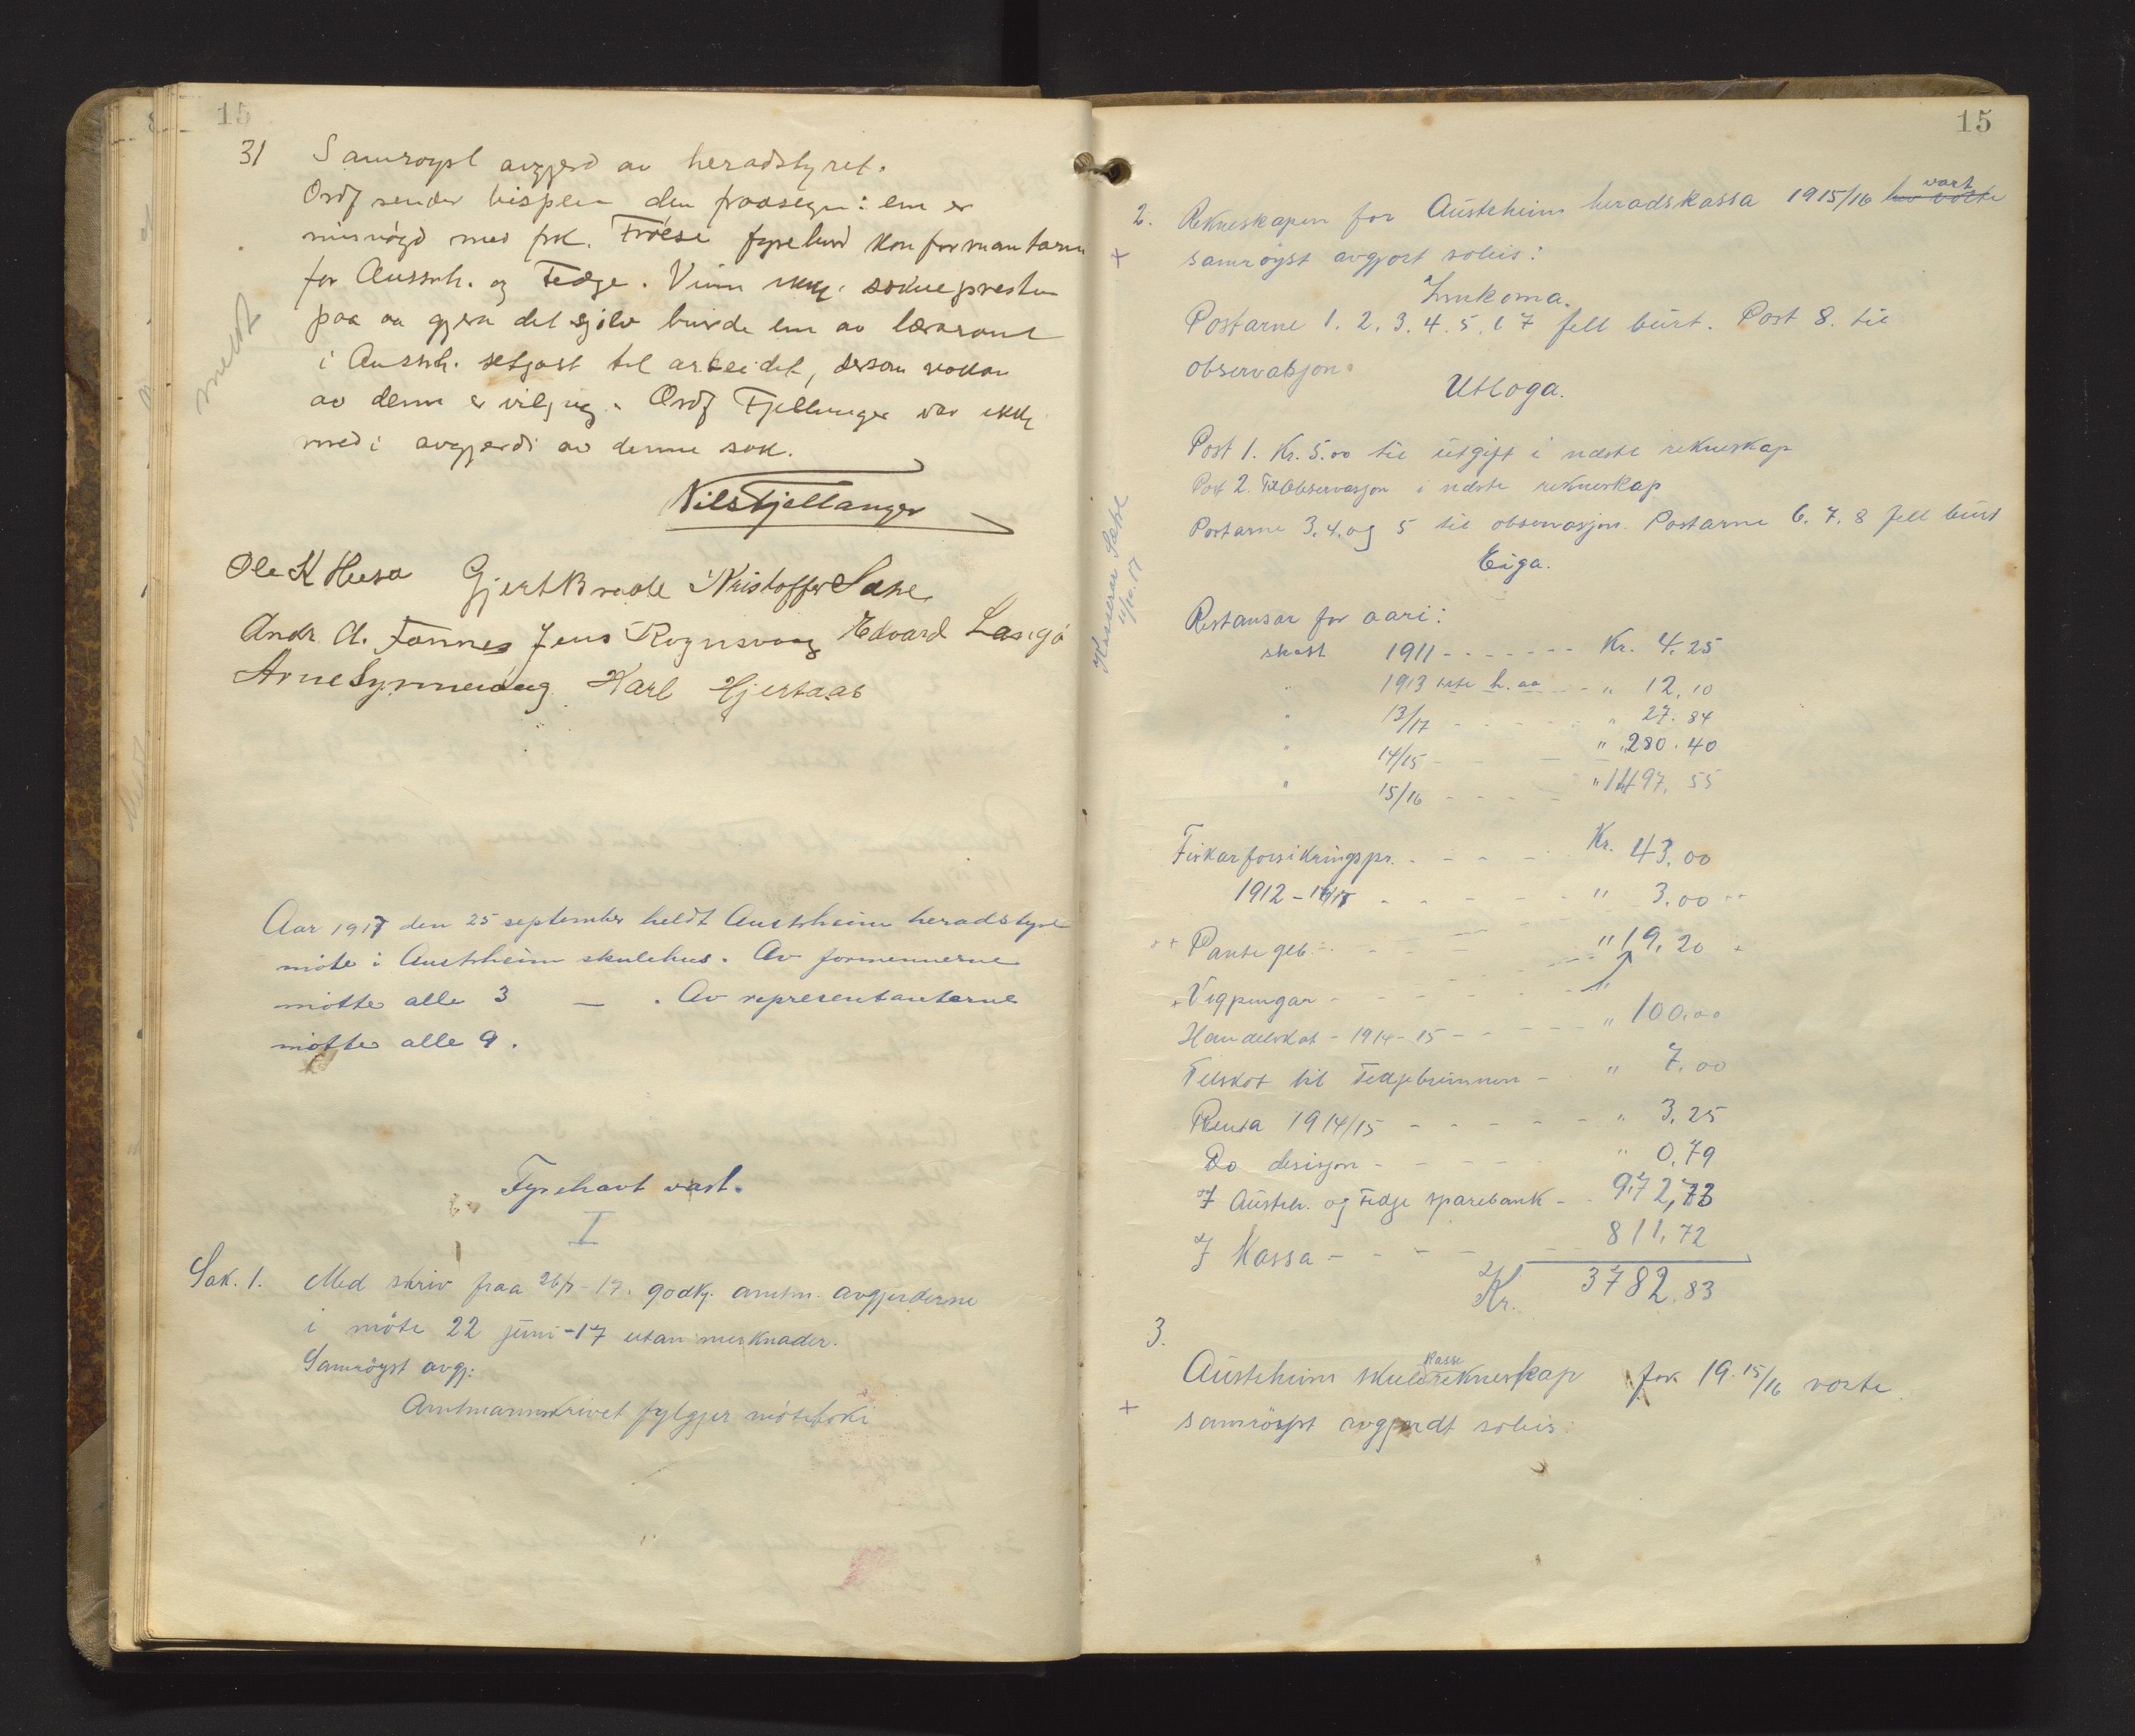 15
31 Samrøyst avgjerd av heradstyret.
Ordf sender bispen den fraasegn: em er
misnøgd med prk. Frøese fyrehund konformantarne
for Austrh. og Fedje. Vinn ikkje sokneprestn
paa aa gjera det sjølv burde ein av lærarane
i Austrh. setjast til arbeidet, dersom nokon
av deim er viljug. Ordf Fjellanger var ikkje
med i avgjerdi av denne sak.
Nils Fjellanger
Ole K Husa Gjert Braate Kristoffer Sæle
Andr. A. Fonnes Jens Rognsvaag Edvard
Arne Synnevaag Karl Hjertaas
Aar 1917 den 25 september heldt Austrheim heradstyre
møte i Austrheim skulehus. Av formennerne
møtte alle 3 — . Av representantarne
møtte alle 9.
Fyrehavt vart.
I
Sak. 1. Med skriv fraa 26/7-17. godkj. amtm. avgjerderne
i møte 22 juni-17 utan merknader.
Samrøyst avgj:
Amtmannskrivet fylgjer møteboki
15
2. Rekneskapen for Austrheim heradskassa 1915/16 vart
samrøyst avgjort soleis:
Innkoma.
Postarne 1. 2. 3. 4. 5. 6 7 fell burt. Post 8. til
observasjon.
Utloga.
Post 1. Kr. 5.00 til utgift i næste rekneskap
Post 2. Til Observasjon i næste rekneskap
Postarne 3. 4. og 5 til observasjon. Postarne 6. 7. 8 fell burt
Eiga.
Restansar for aari:
skatt 1911 - - - - - - - Kr. 4.25
" 1913 1ste h. aa - - " 12.10
" 13/17 - - - - - " 27.84
" 14/15 - - - - " 280.40
" 15/16 - - - - " 1497.55
Firkarforsikringspr. - - - - Kr. 43.00
1912 - - - - - - " 3.00
++ Pante geb. - - - " 19.20 +
+ Vigpengar - - - - - - "
Handelskat - 1914-15 - - - - - " 100.00
Tilskot til Fedjebrunnen - " 7.00
Renta 1914/15 - - - - - " 3.25
Do desisjon - - - - - " 0.79
I Austrh. og Fedje sparebank - - 972,73
I Kassa - - - - - 811,72
Kr. 3782.83
3.
Austrheim skulekasserekneskap for 19 15/16 vorte
+ samrøyst avgjordt soleis: